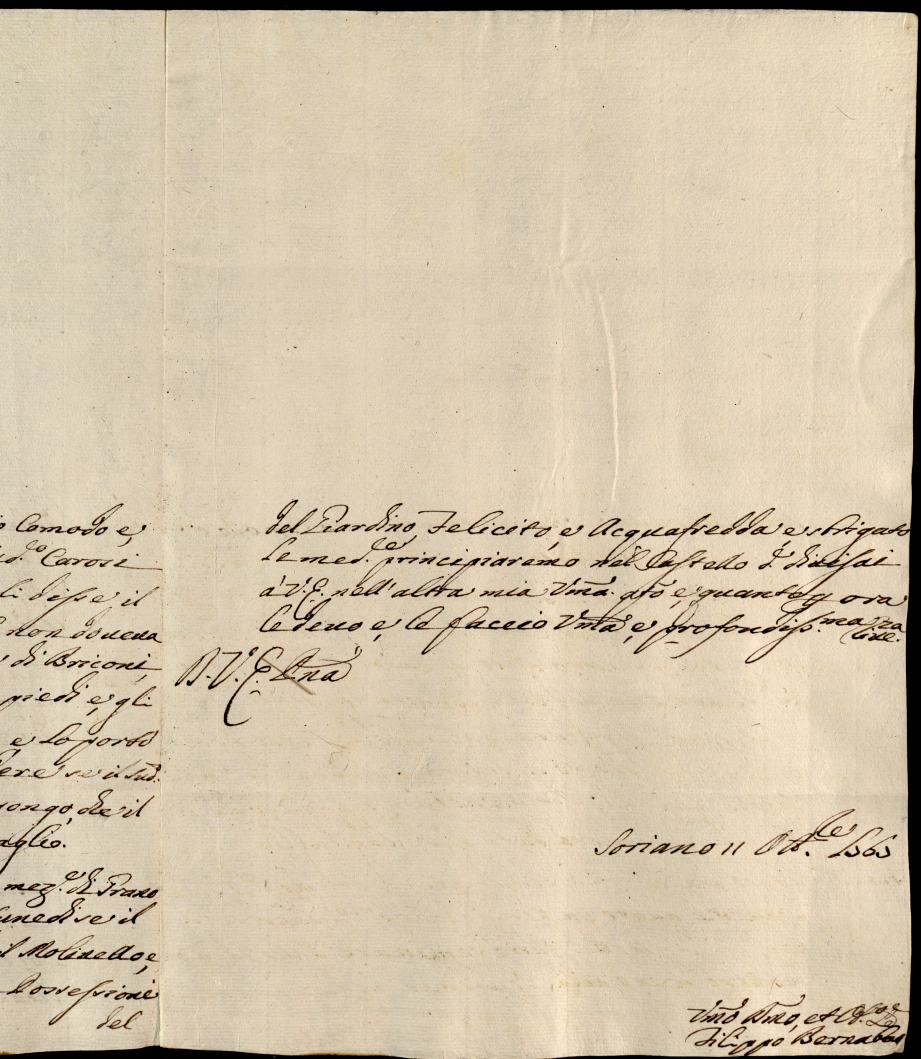 o Comodo e,
d.º Carosi
li disse il
non doveva
di Briconi,
piedi, e gli
e lo portò
ere se il sud.
pongo, che il
aglio.
mez.e di Grano
Lunedi se il
il Molinello, e
Possessioni
del
del Giardino, Felicito, e Acquafredda e strigato
le med.e principiaremo nel Castello d.
à V.E. nell'altra mia Vmã. e, quanto ora
le devo e, le faccio Vmã, e, profondiss.ma
D. V. E.
Soriano 11 Ott.
Vmõ et
Filippo Bernabei